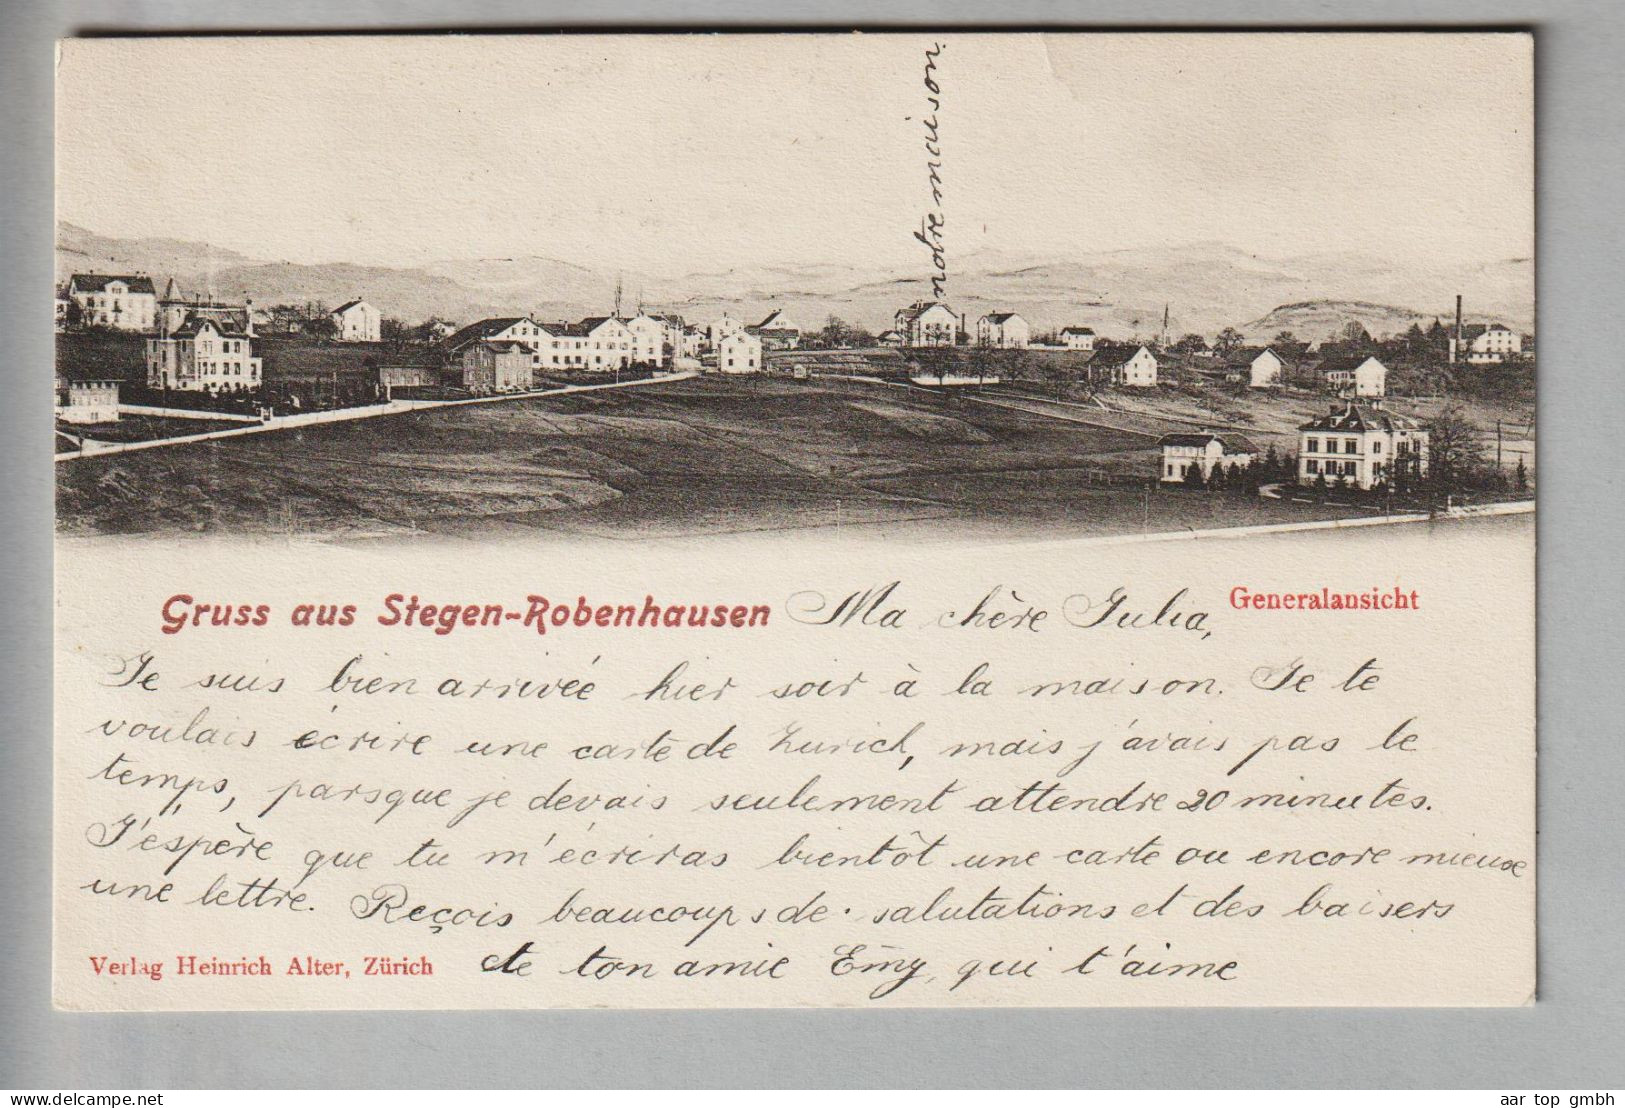 notre maison
Gruss aus Stegen-Robenhausen
Generalansicht
Ma chère Julia,
Je suis bien arrivée hier soir à la maison. Je te
voulais écrire une carte de Zurich, mais j'avais pas le
temps, parsque je devais seulement attendre 20 minutes.
J'éspère que tu m'écriras bientôt une carte ou encore mieuxe
une lettre. Reçois beaucoups de salutations et des baisers
de ton amie Emy, qui t'aime
Verlag Heinrich Alter, Zürich
www.delcampe.net
aar top gmbh